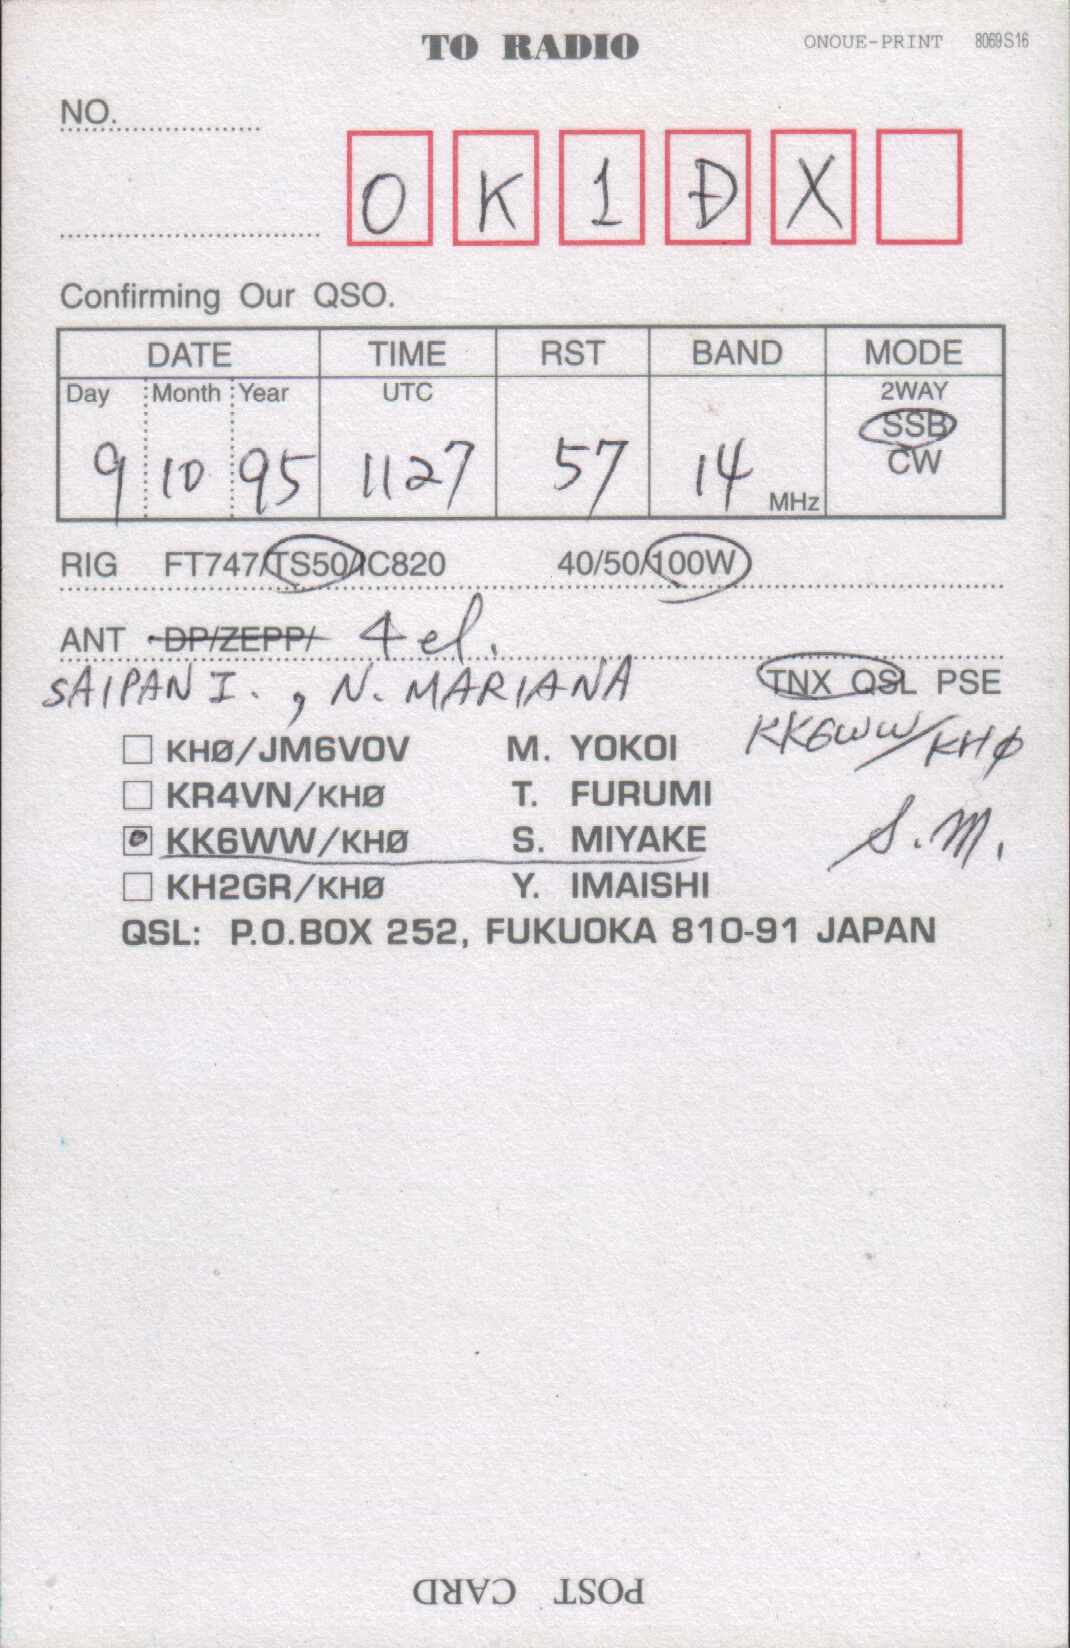 TO RADIO
ONOUE-PRINT 8069S16
NO.
OK1DX
Confirming Our QSO.
DATE TIME RST BAND MODE
Day Month Year UTC 2WAY
SSB
CW
9 10 95 1127 57 14 MHz
RIG FT747/TS50/IC820 40/50/100W
ANT DP/ZEPP/ 4el.
SAIPAN I., N. MARIANA
TNX QSL PSE
KK6WW/KHØ
KHØ/JM6VOV M. YOKOI
KR4VN/KHØ T. FURUMI
KK6WW/KHØ S. MIYAKE
S.M.
KH2GR/KHØ Y. IMAISHI
QSL: P.O.BOX 252, FUKUOKA 810-91 JAPAN
POST CARD